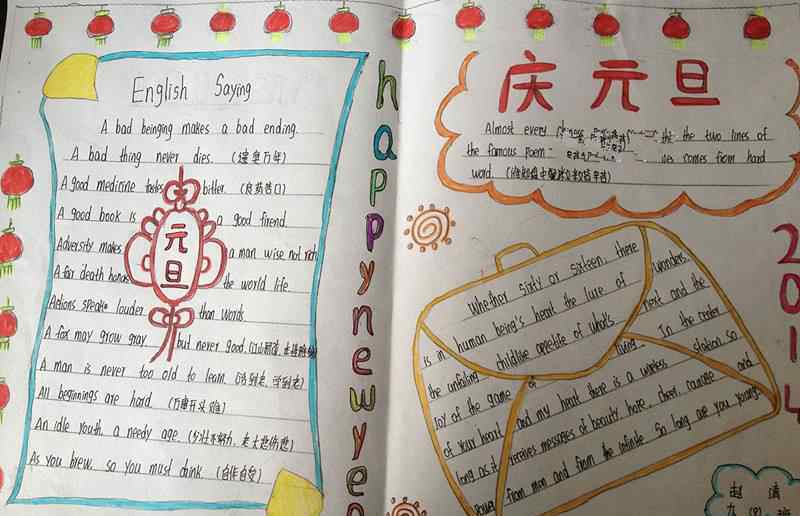 English Saying
A bad beinging makes a bad ending.
A bad thing never dies. (遗臭万年)
A good medicine tastes bitter. (良药苦口)
A good book is a good firend.
Adversity makes a man wise not rich
A fair death honors the world life
Actions speak louder than words
A fox may grow gray but never good. (江山易改,本性难移)
A man is never too old to learn. (活到老,学到老)
All beginnings are hard. (万事开头难)
An idle youth, a needy age. (少壮不努力,老大徒伤悲)
As you brew, so you must drink. (自作自受)
元旦
happy new yea
庆元旦
Almost every the the two lines of
the famous poem comes from hard
word.
Whether sixty or sixteen, there
is in human being's heart the lure of wonders.
the unfailing childlike appetite of what's next and the
joy of the game of living. In the center
of your heart and my heart there is a wireless station so
long as it receives messages of beauty, hope, cheer, courage and
power from man and from the infinite So long are you young.
2014
赵清
九(8)班